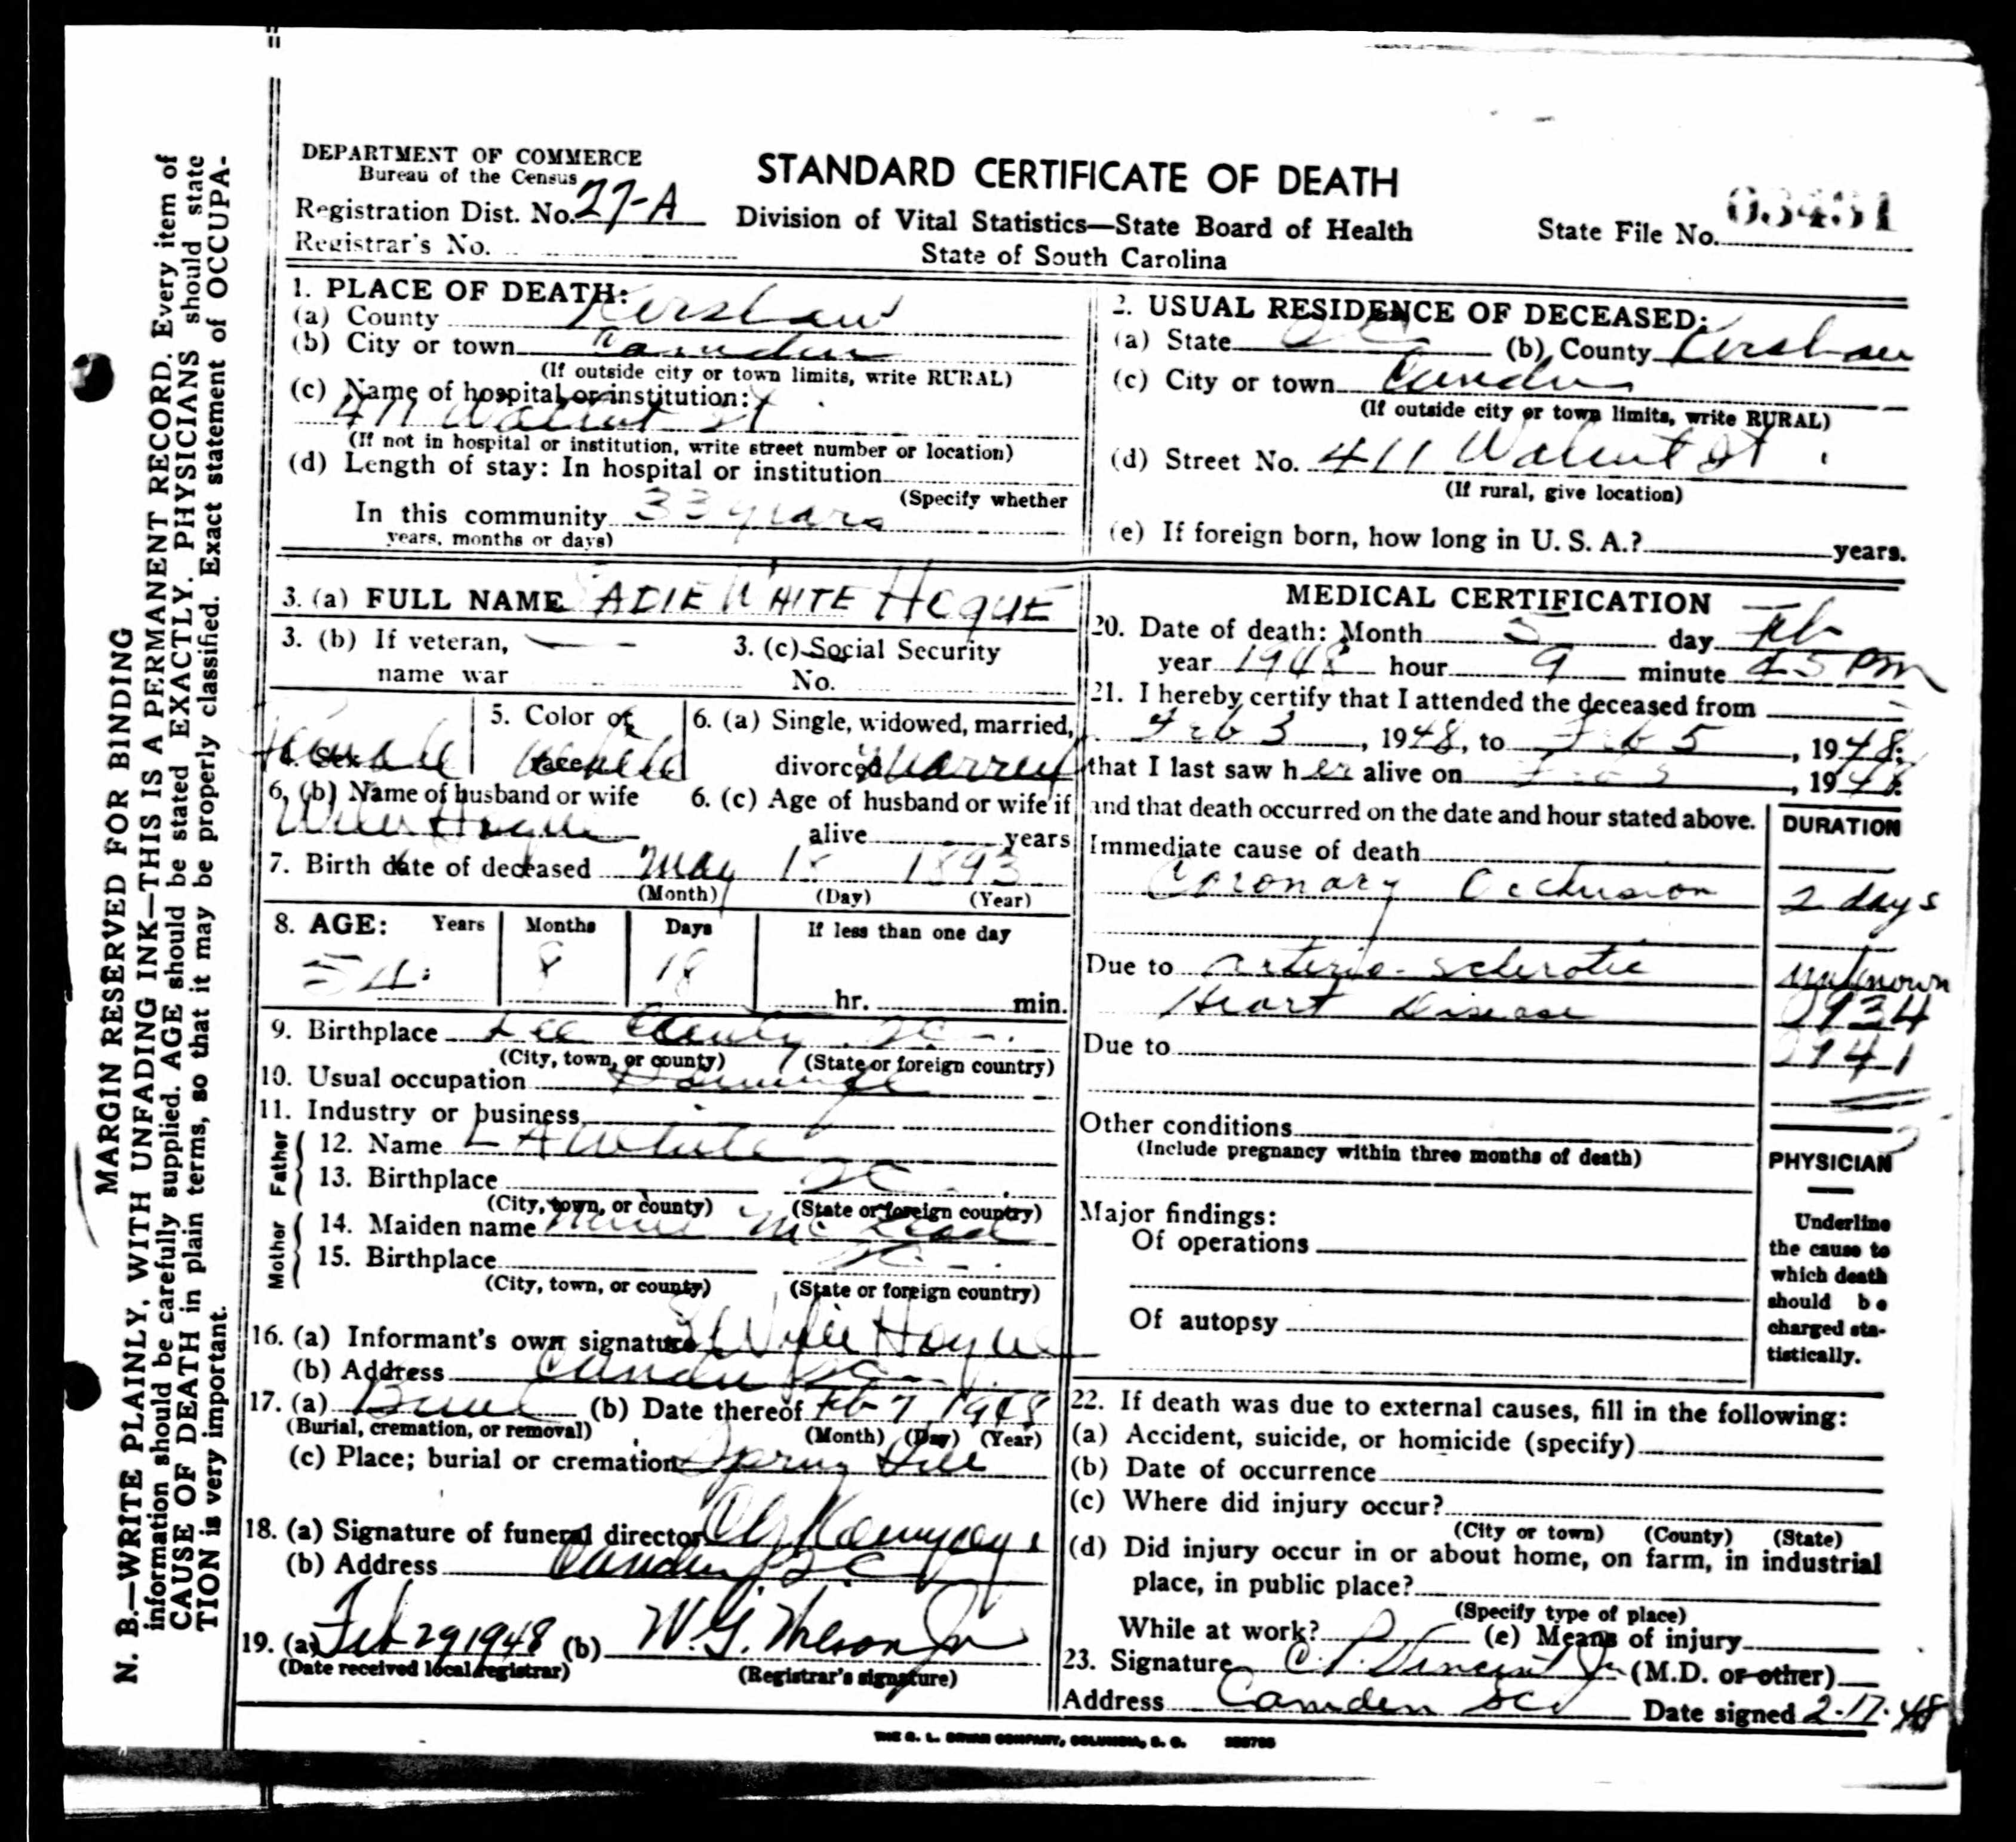 MARGIN RESERVED FOR BINDING
N. B.—WRITE PLAINLY, WITH UNFADING INK—THIS IS A PERMANENT RECORD. Every item of
information should be carefully supplied. AGE should be stated EXACTLY. PHYSICIANS should state
CAUSE OF DEATH in plain terms, so that it may be properly classified. Exact statement of OCCUPA-
TION is very important.
DEPARTMENT OF COMMERCE
Bureau of the Census
Registration Dist. No. 27-A
Registrar's No.
STANDARD CERTIFICATE OF DEATH
Division of Vital Statistics—State Board of Health
State of South Carolina
State File No. 03431
1. PLACE OF DEATH:
(a) County Kershaw
(b) City or town Camden
(If outside city or town limits, write RURAL)
(c) Name of hospital or institution:
411 Walnut St
(If not in hospital or institution, write street number or location)
(d) Length of stay: In hospital or institution
(Specify whether
In this community 33 years
years, months or days)
2. USUAL RESIDENCE OF DECEASED:
(a) State SC (b) County Kershaw
(c) City or town Camden
(If outside city or town limits, write RURAL)
(d) Street No. 411 Walnut St
(If rural, give location)
(e) If foreign born, how long in U. S. A.? years.
3. (a) FULL NAME SADIE WHITE HOGUE
3. (b) If veteran, —
name war
3. (c) Social Security
No.
4. Sex Female
5. Color or
race White
6. (a) Single, widowed, married,
divorced Married
6. (b) Name of husband or wife
Hogue
6. (c) Age of husband or wife if
alive years
7. Birth date of deceased May 18 1893
(Month) (Day) (Year)
8. AGE: Years Months Days If less than one day
54 8 18 hr. min.
9. Birthplace Lee County SC
(City, town, or county) (State or foreign country)
10. Usual occupation
11. Industry or business
Father
12. Name L A White
13. Birthplace SC
(City, town, or county) (State or foreign country)
Mother
14. Maiden name
15. Birthplace SC
(City, town, or county) (State or foreign country)
16. (a) Informant's own signature Wylie Hogue
(b) Address Camden SC
17. (a) Burial (b) Date thereof Feb 7 1948
(Burial, cremation, or removal) (Month) (Day) (Year)
(c) Place; burial or cremation Spring Hill
18. (a) Signature of funeral director
(b) Address Camden, SC
19. (a) Feb 29 1948 (b) W. G. Wilson Jr
(Date received local registrar) (Registrar's signature)
MEDICAL CERTIFICATION
20. Date of death: Month 5 day Feb
year 1948 hour 9 minute 45 PM
21. I hereby certify that I attended the deceased from
Feb 3, 1948, to Feb 5, 1948;
that I last saw her alive on Feb 5, 1948
and that death occurred on the date and hour stated above.
DURATION
Immediate cause of death
Coronary Occlusion 2 days
Due to Arterio-sclerotic unknown
Heart Disease
Due to
Other conditions
(Include pregnancy within three months of death)
Major findings:
Of operations
Of autopsy
PHYSICIAN
Underline
the cause to
which death
should be
charged sta-
tistically.
22. If death was due to external causes, fill in the following:
(a) Accident, suicide, or homicide (specify)
(b) Date of occurrence
(c) Where did injury occur?
(City or town) (County) (State)
(d) Did injury occur in or about home, on farm, in industrial
place, in public place?
(Specify type of place)
While at work? (e) Means of injury
23. Signature C. P. Vincent Jr (M.D. or other)
Address Camden SC Date signed 2-17-48
THE R. L. BRYAN COMPANY, COLUMBIA, S. C.